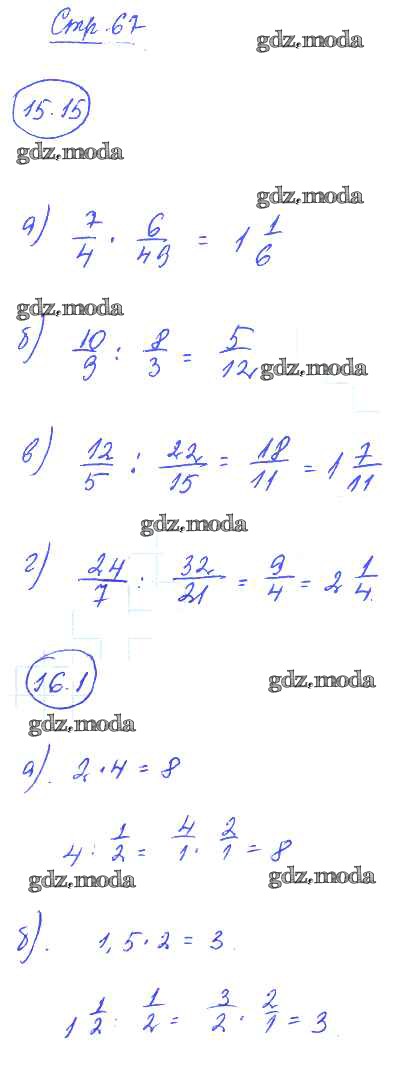 Стр. 67
gdz.moda
15.15
gdz.moda
gdz.moda
а) 7/4 · 6/49 = 1 1/6
gdz.moda
б) 10/9 : 8/3 = 5/12
gdz.moda
в) 12/5 : 22/15 = 18/11 = 1 7/11
gdz.moda
г) 24/7 : 32/21 = 9/4 = 2 1/4
16.1
gdz.moda
gdz.moda
а). 2 · 4 = 8
4 : 1/2 = 4/1 · 2/1 = 8
gdz.moda
gdz.moda
б). 1,5 · 2 = 3
1 1/2 : 1/2 = 3/2 · 2/1 = 3